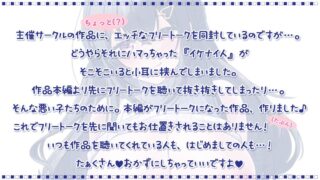 ちょっと(？)
主催サークルの作品に、エッチなフリートークを同封しているのですが…。
どうやらそれにハマっちゃった『イケナイ人』が
そこそこいると小耳に挟んでしまいました。
作品本編より先にフリートークを聴いて抜き抜きしてしまったり…。
そんな悪い子たちのために。本編がフリートークになった作品、作りました♪
これでフリートークを先に聞いてもお仕置きされることはありません！
(たぶん)
いつも作品を聴いてくれている人も、はじめましての人も…！
たぁくさん♥おかずにしちゃっていいですよ♥